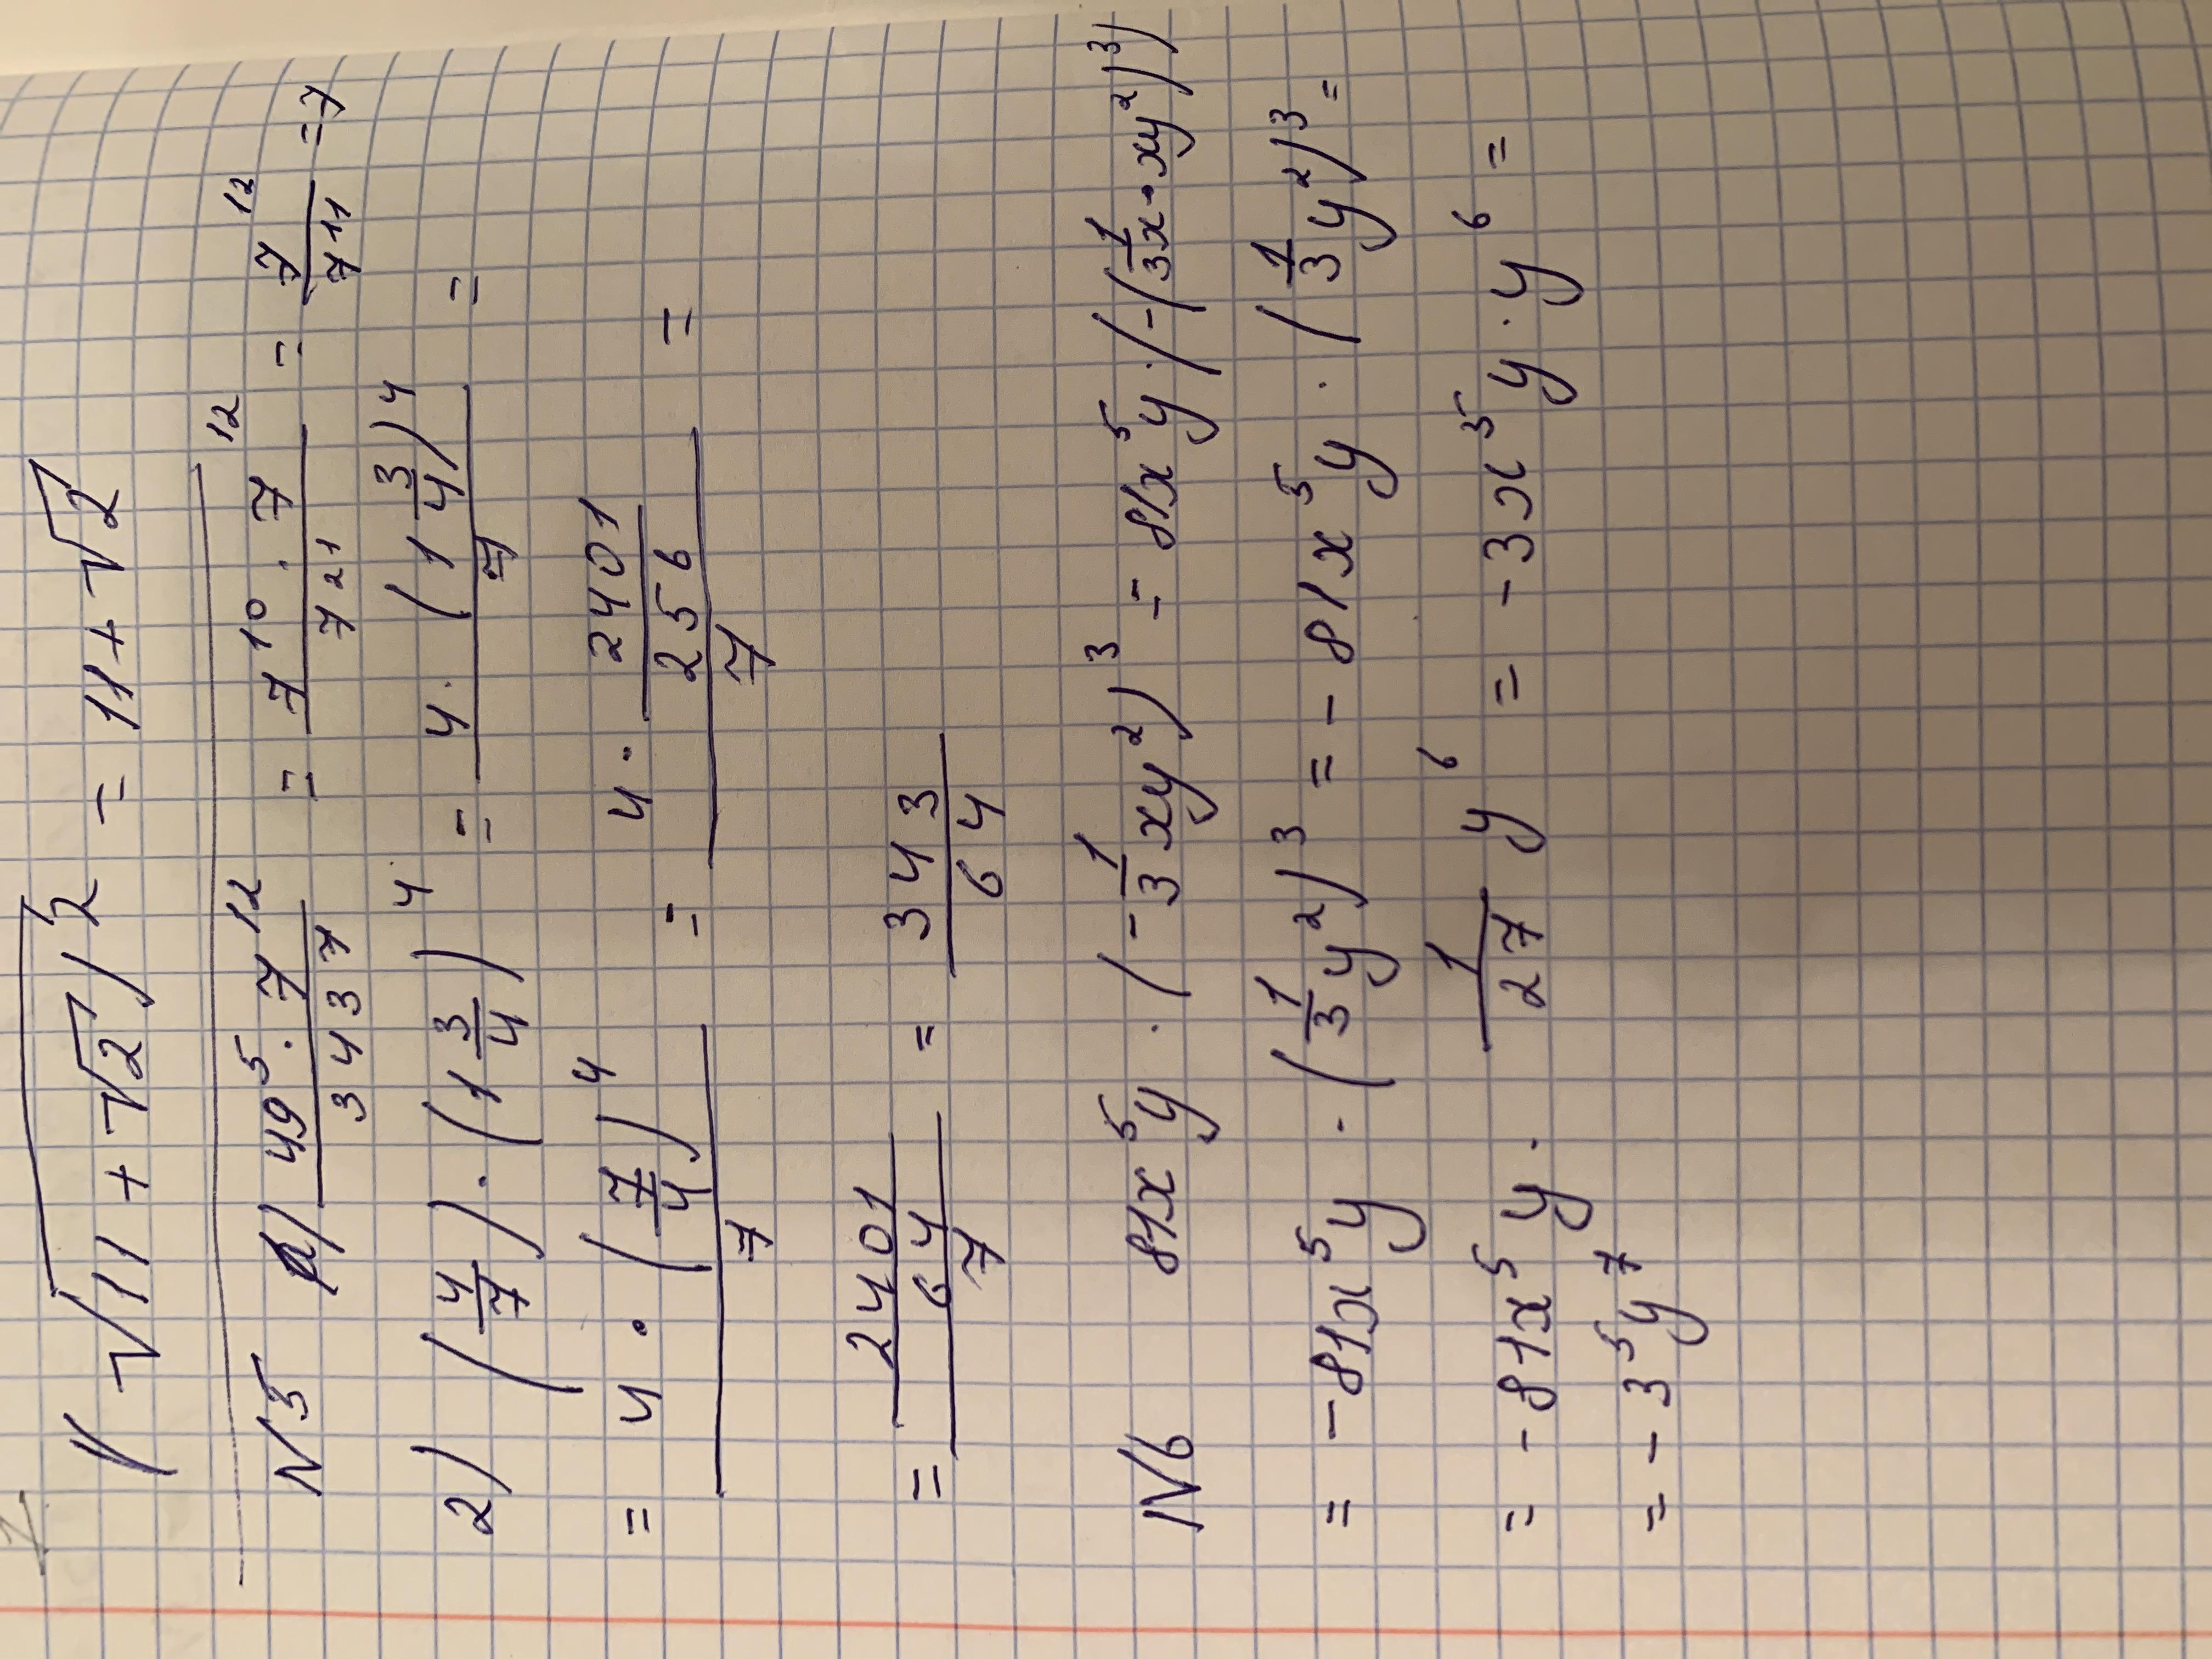 (√11 + √2)² = 11 + √2
N5 1) 49⁵ · 7¹² / 343⁷ = 7¹⁰ · 7¹² / 7²¹ = 7¹² / 7¹¹ = 7
2) (4/7) · (1 3/4)⁴ = 4 · (1 3/4)⁴ / 7 =
= 4 · (7/4)⁴ / 7 = 4 · 2401/256 / 7 =
= 2401/64 / 7 = 343/64
N6 81x⁵y · (-1/3xy²)³ = 81x⁵y · (-(1/3x · xy²)³)
= -81x⁵y · (1/3y²)³ = -81x⁵y · (1/3y²)³ =
= -81x⁵y · 1/27 y⁶ = -3x⁵y · y⁶ =
= -3⁵y⁷